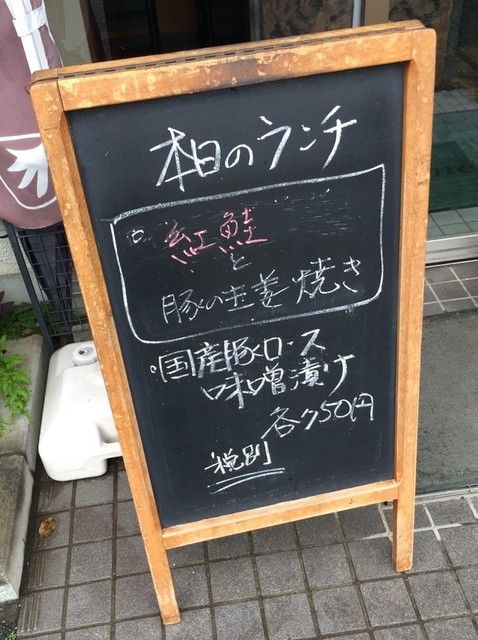 本日のランチ
紅鮭
と
豚の生姜焼き
国産豚ロース
味噌漬け
各750円
税別